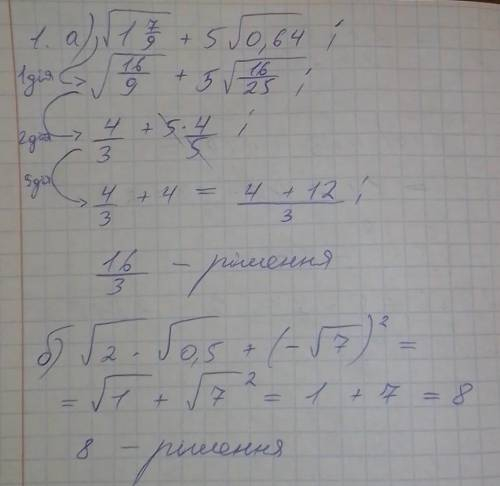 1. а) √(1 7/9) + 5√0,64 ;
1дія √(16/9) + 5√(16/25) ;
2дія 4/3 + 5 · 4/5 ;
3дія 4/3 + 4 = (4 + 12)/3 ;
16/3 – рішення
б) √2 · √0,5 + (-√7)² =
= √1 + √7² = 1 + 7 = 8
8 – рішення